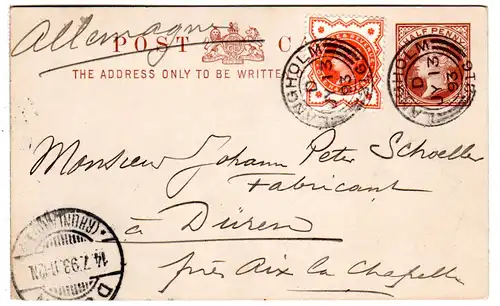 Allemagne
POST CA
THE ADDRESS ONLY TO BE WRITTE
HALF PENNY
LANGHOLM
D
JY 13
93
LANGHOLM
D
JY 13
Monsieur Johann Peter Schoeller
Fabricant
à Düren
près Aix la Chapelle
14.7.93.